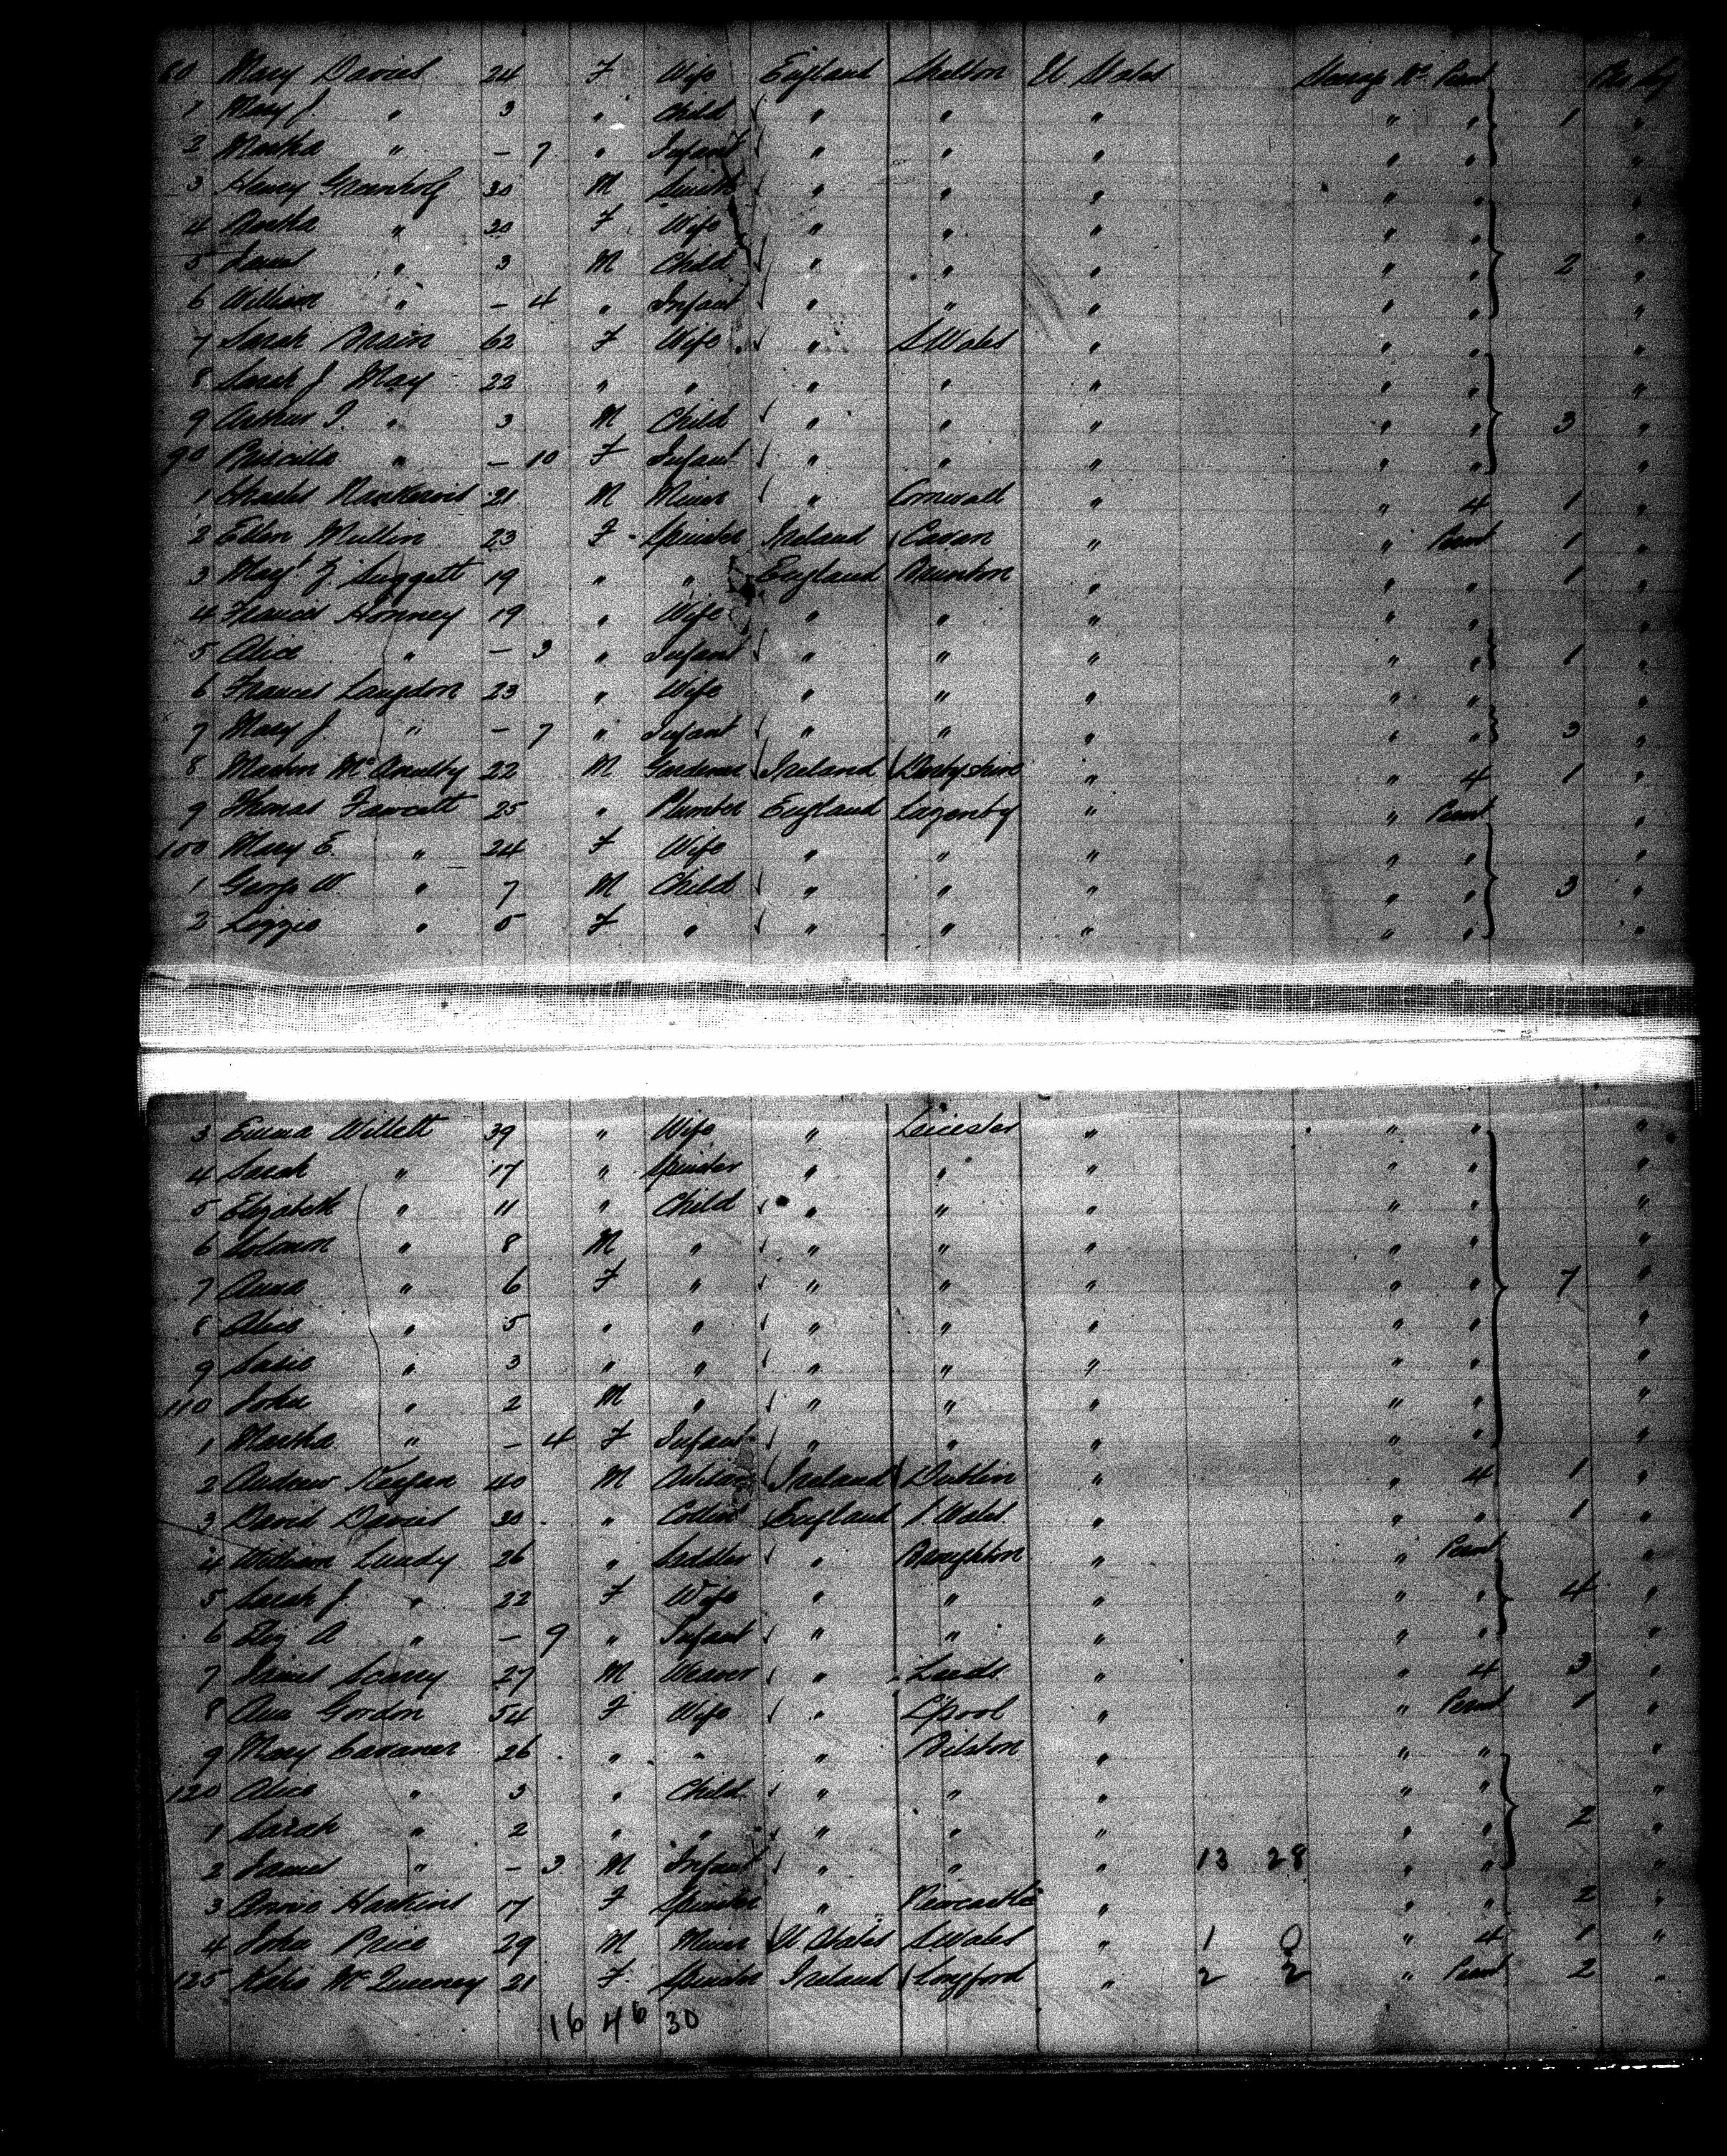 80 Mary Davies 24 F Wife England Shelton U States Steerage Pernt
1 Mary J. " 3 " Child " " " " " 1 "
2 Martha " – 7 " Infant " " " " " "
3 Henry 30 M Smith " " " " " "
4 " 30 F Wife " " " " " "
5 " 3 M Child " " " " " 2 "
6 William " – 4 " Infant " " " " " "
7 Sarah 62 F Wife " S Wales " " " "
8 Sarah J May 22 " " " " " " " "
9 Arthur J. " 3 M Child " " " " " 3 "
90 Priscilla " – 10 F Infant " " " " " "
1 Charles Nankervis 21 M Miner " Cornwall " " 4 1 "
2 Ellen Mullin 23 F Spinster Ireland Cavan " " Pernt 1 "
3 Magt Suggett 19 " " England Braunton " " " 1 "
4 Frances Honney 19 " Wife " " " " " "
5 Alice " – 3 " Infant " " " " " 1 "
6 Frances Langdon 23 " Wife " " " " " "
7 Mary J. " – 7 " Infant " " " " " 3 "
8 Martin McAnulty 22 M Gardener Ireland Derbyshire " " 4 1 "
9 Thomas Fawcett 25 " Plumber England Lazenby " " Pernt "
100 Mary E. " 24 F Wife " " " " " "
1 George W. " 7 M Child " " " " " 3 "
2 Lizzie " 5 F " " " " " " "
3 Emma Willett 39 " Wife " Leicester " " " "
4 Sarah " 17 " Spinster " " " " " "
5 Elizabeth " 11 " Child " " " " " "
6 Solomon " 8 M " " " " " " "
7 Anna " 6 F " " " " " " 7 "
8 Alice " 5 " " " " " " " "
9 " 3 " " " " " " " "
110 John " 2 M " " " " " " "
1 Martha " – 4 F Infant " " " " " "
2 Andrew Keegan 40 M Artisan Ireland Dublin " " 4 1 "
3 David Davies 30 " Collier England S Wales " " " 1 "
4 William Cundy 26 " Saddler " " " Pernt "
5 Sarah J. " 22 F Wife " " " " " 4 "
6 Eliz A " – 9 " Infant " " " " " "
7 James 27 M Weaver " Leeds " " 4 3 "
8 Ann Gordon 54 F Wife " L'pool " " Pernt 1 "
9 Mary 26 " " " Bilston " " " "
120 Alice " 3 " Child " " " " " "
1 Sarah " 2 " " " " " " " 2 "
2 James " – 3 M Infant " " " 13 28 " " "
3 Annie Haskins 17 F Spinster " Newcastle " " " 2 "
4 John Price 29 M Miner U States S Wales " 1 0 " 4 1 "
125 Katie 21 F Spinster Ireland Longford " 2 2 " Pernt 2 "
16 46 30